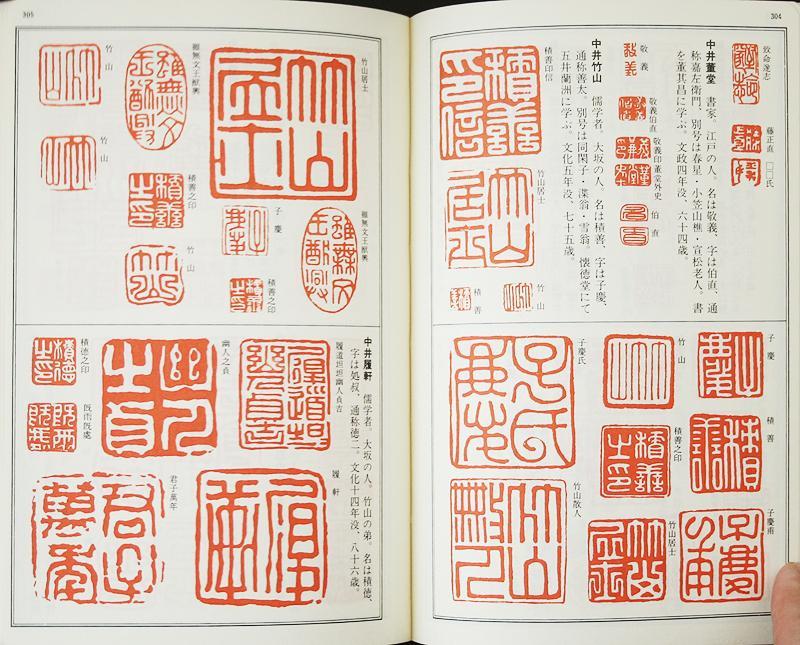 304
致命達志
藤正直
□□氏
中井董堂　書家。江戸の人。名は敬義、字は伯直、通
称嘉左衛門、別号は春星・小笠山樵・宣松老人。書
を董其昌に学ぶ。文政四年没、六十四歳。
敬義
敬義伯直
敬義印董堂外史
伯直
中井竹山　儒学者。大坂の人。名は積善、字は子慶、
通称善太。別号は同関子・渫翁・雪翁。懐徳堂にて
五井蘭洲に学ぶ。文化五年没、七十五歳。
積善印信
竹山居士
竹山
積善
子慶
積善
子慶甫
竹山
積善之印
竹山居士
子慶氏
竹山散人
305
竹山居士
雖無文王猷興
子慶
積善之印
雖無文王猷興
積善之印
竹山
竹山
竹山
中井履軒　儒学者。大坂の人。竹山の弟。名は積徳、
字は処叔、通称徳二。文化十四年没、八十六歳。
履道坦坦幽人貞吉
履軒
幽人之貞
君子萬年
積徳之印
既雨既處